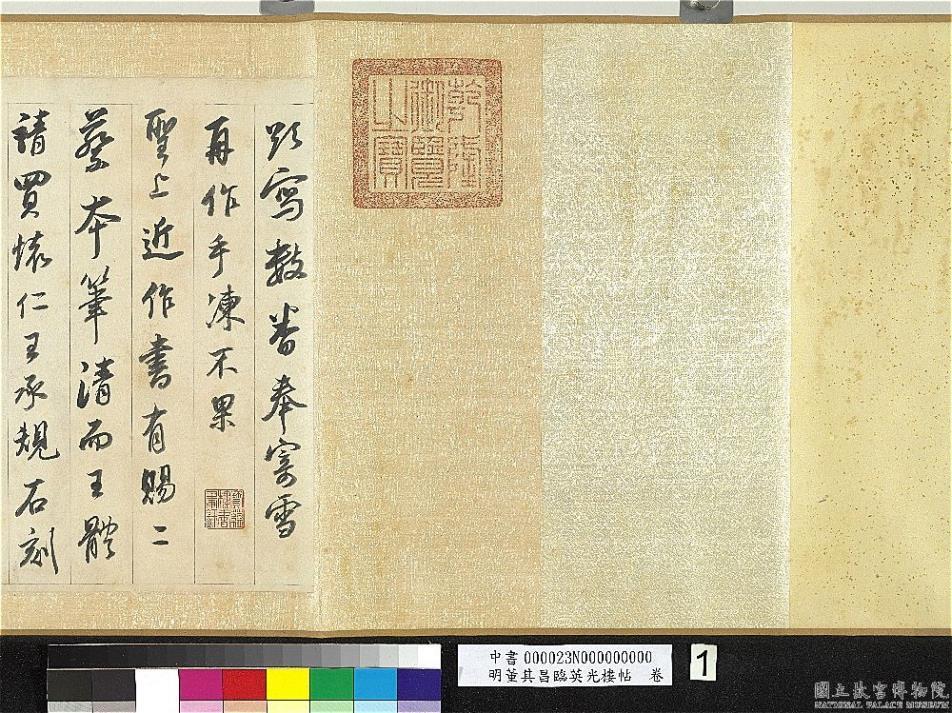 乾隆
御覽
之寶
欵寫數番奉寄雪
再作手凍不果
聖上近作書有賜二
蔡本筆清而王體
請買懷仁王承規石刻
中書000023N000000000
明董其昌臨英光樓帖 卷
1
國立故宮博物院
NATIONAL PALACE MUSEUM